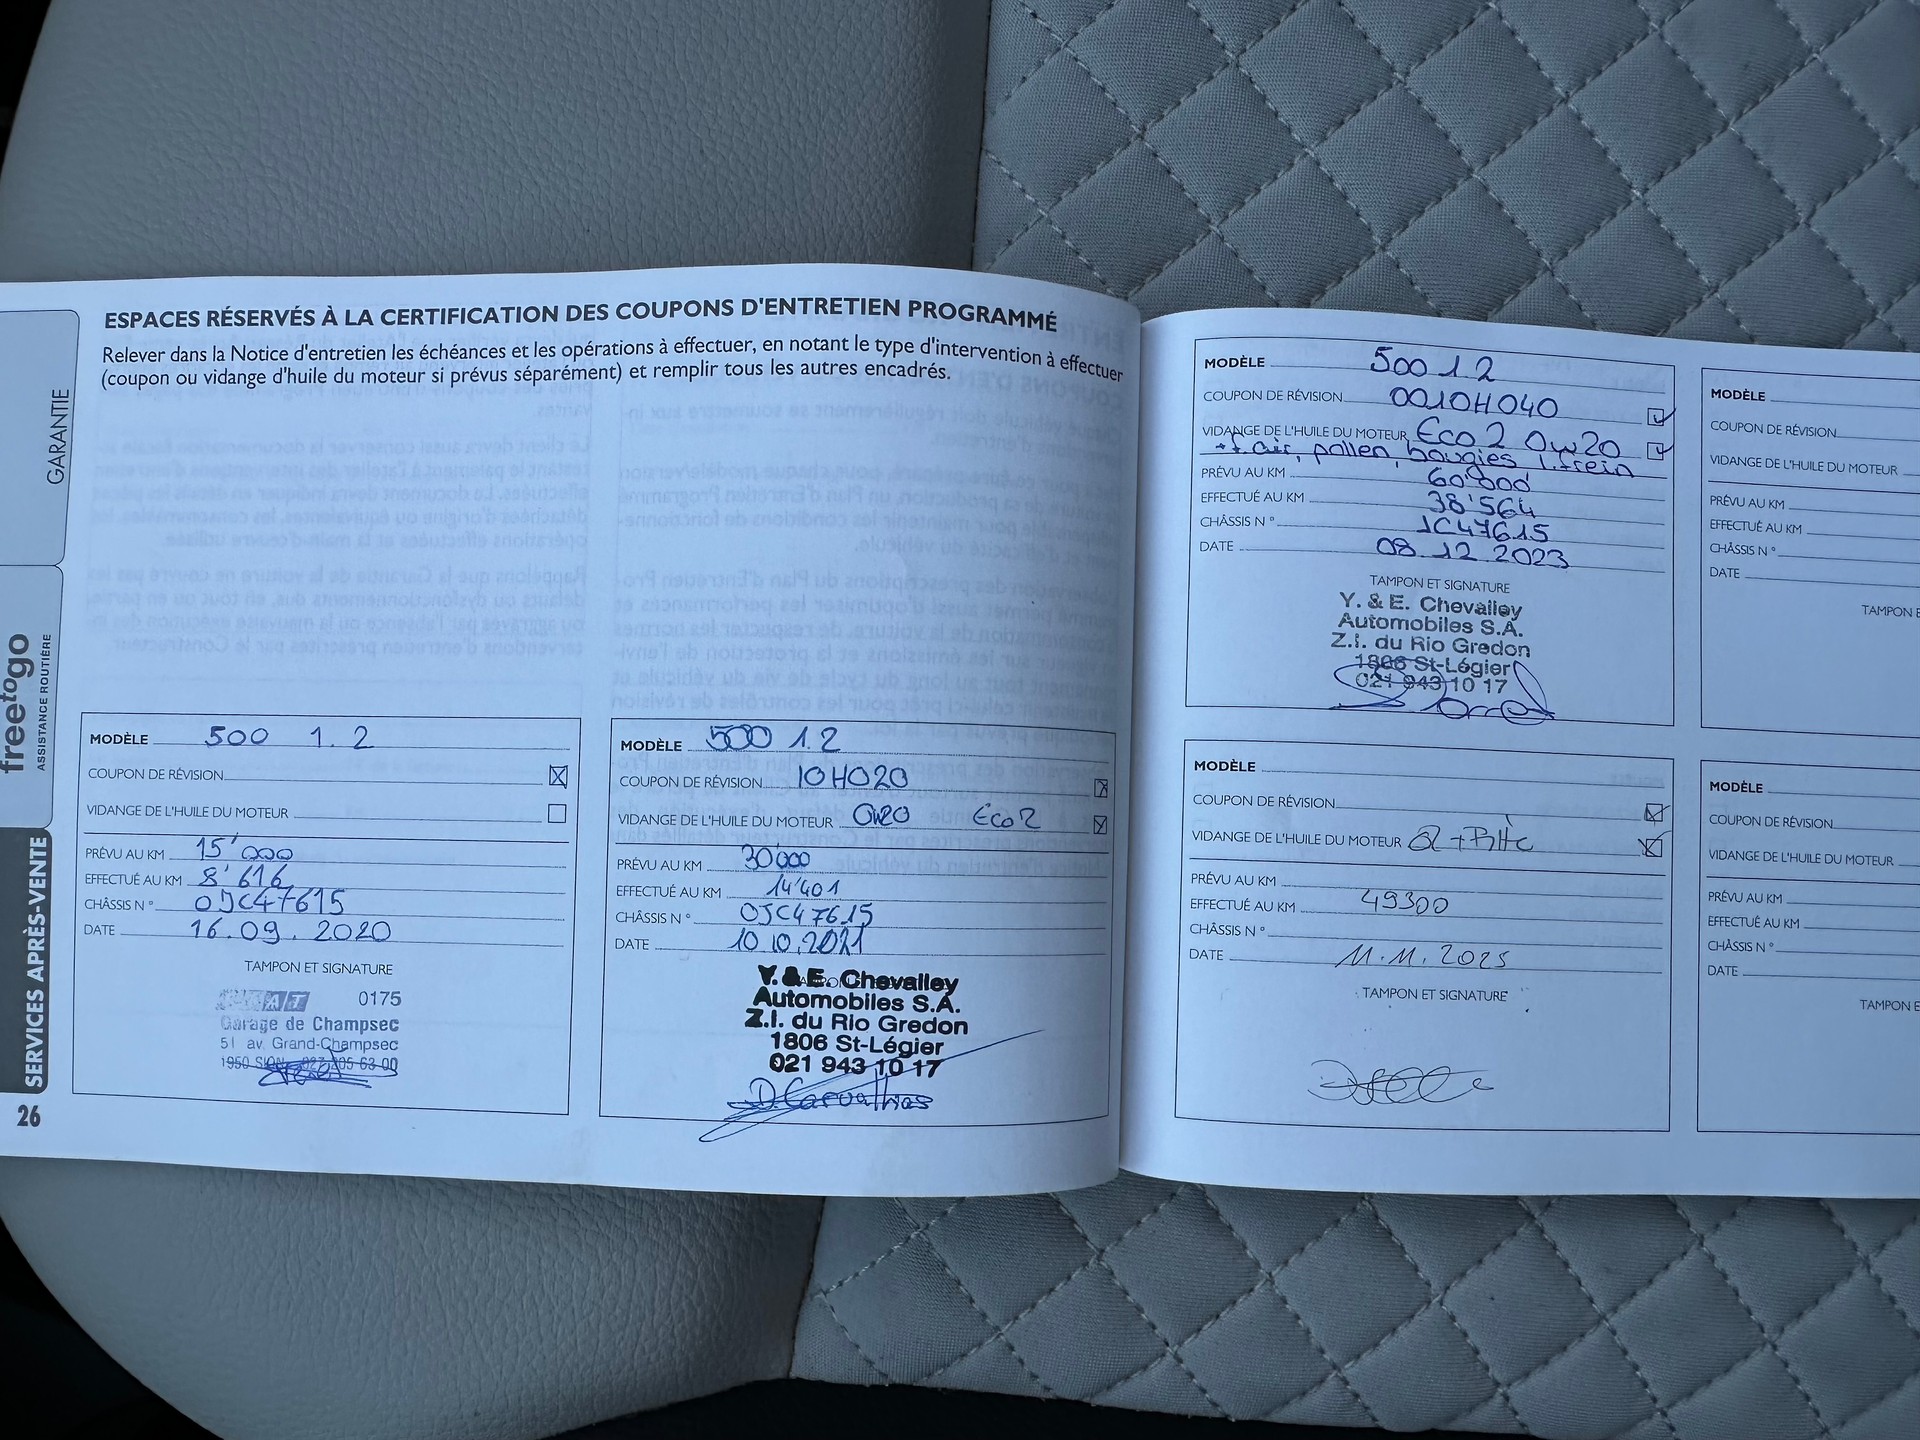 GARANTIE
freetogo
ASSISTANCE ROUTIÈRE
SERVICES APRÈS-VENTE
26
ESPACES RÉSERVÉS À LA CERTIFICATION DES COUPONS D'ENTRETIEN PROGRAMMÉ
Relever dans la Notice d'entretien les échéances et les opérations à effectuer, en notant le type d'intervention à effectuer
(coupon ou vidange d'huile du moteur si prévus séparément) et remplir tous les autres encadrés.
MODÈLE 500 1.2
COUPON DE RÉVISION
VIDANGE DE L'HUILE DU MOTEUR
PRÉVU AU KM 15'000
EFFECTUÉ AU KM 8'616
CHÂSSIS N° 0JC47615
DATE 16.09.2020
TAMPON ET SIGNATURE
FIAT 0175
Garage de Champsec
51 av. Grand-Champsec
1950 SION
MODÈLE 500 1.2
COUPON DE RÉVISION 10H020
VIDANGE DE L'HUILE DU MOTEUR 0w20 Eco2
PRÉVU AU KM 30'000
EFFECTUÉ AU KM 14'401
CHÂSSIS N° 0JC47615
DATE 10.10.2021
Y. & E. Chevalley
Automobiles S.A.
Z.I. du Rio Gredon
1806 St-Légier
021 943 10 17
D. Carvalhas
MODÈLE 500 1.2
COUPON DE RÉVISION 0010H040
VIDANGE DE L'HUILE DU MOTEUR Eco2 0w20
+ f. air, pollen, bougies, l. frein
PRÉVU AU KM 60'000
EFFECTUÉ AU KM 38'564
CHÂSSIS N° JC47615
DATE 08.12.2023
TAMPON ET SIGNATURE
Y. & E. Chevalley
Automobiles S.A.
Z.I. du Rio Gredon
1806 St-Légier
021 943 10 17
MODÈLE
COUPON DE RÉVISION
VIDANGE DE L'HUILE DU MOTEUR
PRÉVU AU KM
EFFECTUÉ AU KM 49300
CHÂSSIS N°
DATE 11.11.2025
TAMPON ET SIGNATURE
MODÈLE
COUPON DE RÉVISION
VIDANGE DE L'HUILE DU MOTEUR
PRÉVU AU KM
EFFECTUÉ AU KM
CHÂSSIS N°
DATE
TAMPON E
MODÈLE
COUPON DE RÉVISION
VIDANGE DE L'HUILE DU MOTEUR
PRÉVU AU KM
EFFECTUÉ AU KM
CHÂSSIS N°
DATE
TAMPON E